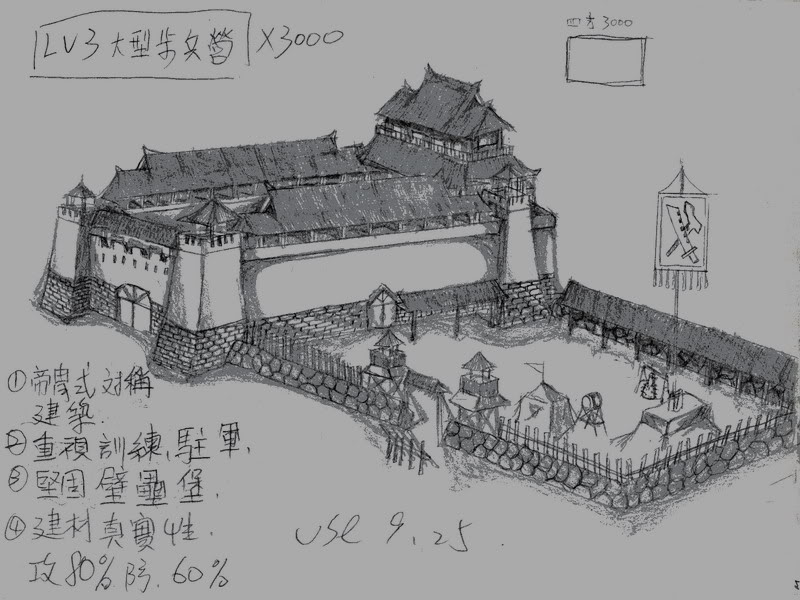 LV3 大型步兵營 X3000
四方 3000
① 帝農式 对稱
建築.
② 重視訓練,駐軍,
③ 堅固壁壘堡.
④ 建材真實性.
攻80% 防.60%
USE 9.25.